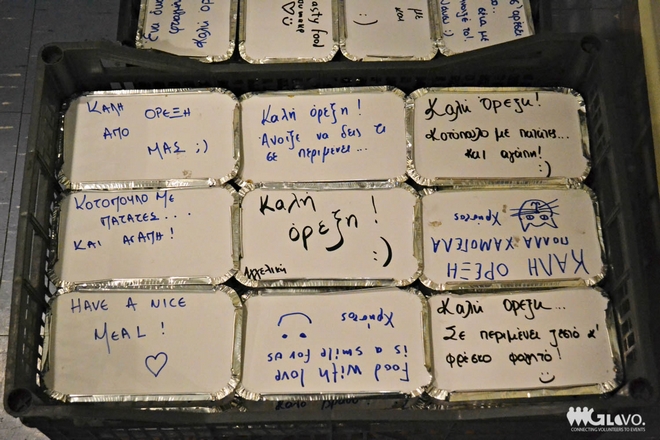 φαγητό
Καλή
tasty food
:)
με
και
ΚΑΛΗ ΟΡΕΞΗ
ΑΠΟ
ΜΑΣ ;)
Καλή όρεξη!
Άνοιξε να δεις τι
σε περιμένει...
Καλή Όρεξη!
Κοτόπουλο με πατάτες...
και αγάπη!
:)
ΚΟΤΟΠΟΥΛΟ ΜΕ
ΠΑΤΑΤΕΣ....
ΚΑΙ ΑΓΑΠΗ!
Καλή
όρεξη!
:)
Αγγελική
ΚΑΛΗ ΟΡΕΞΗ
ΠΟΛΛΑ ΧΑΜΟΓΕΛΑ
Χρήστος
HAVE A NICE
MEAL!
Food with love
is a smile for us
Χρήστος
Καλή Όρεξη...
Σε περιμένει ζεστό κ'
φρέσκο φαγητό!
GLOVO.
CONNECTING VOLUNTEERS TO EVENTS